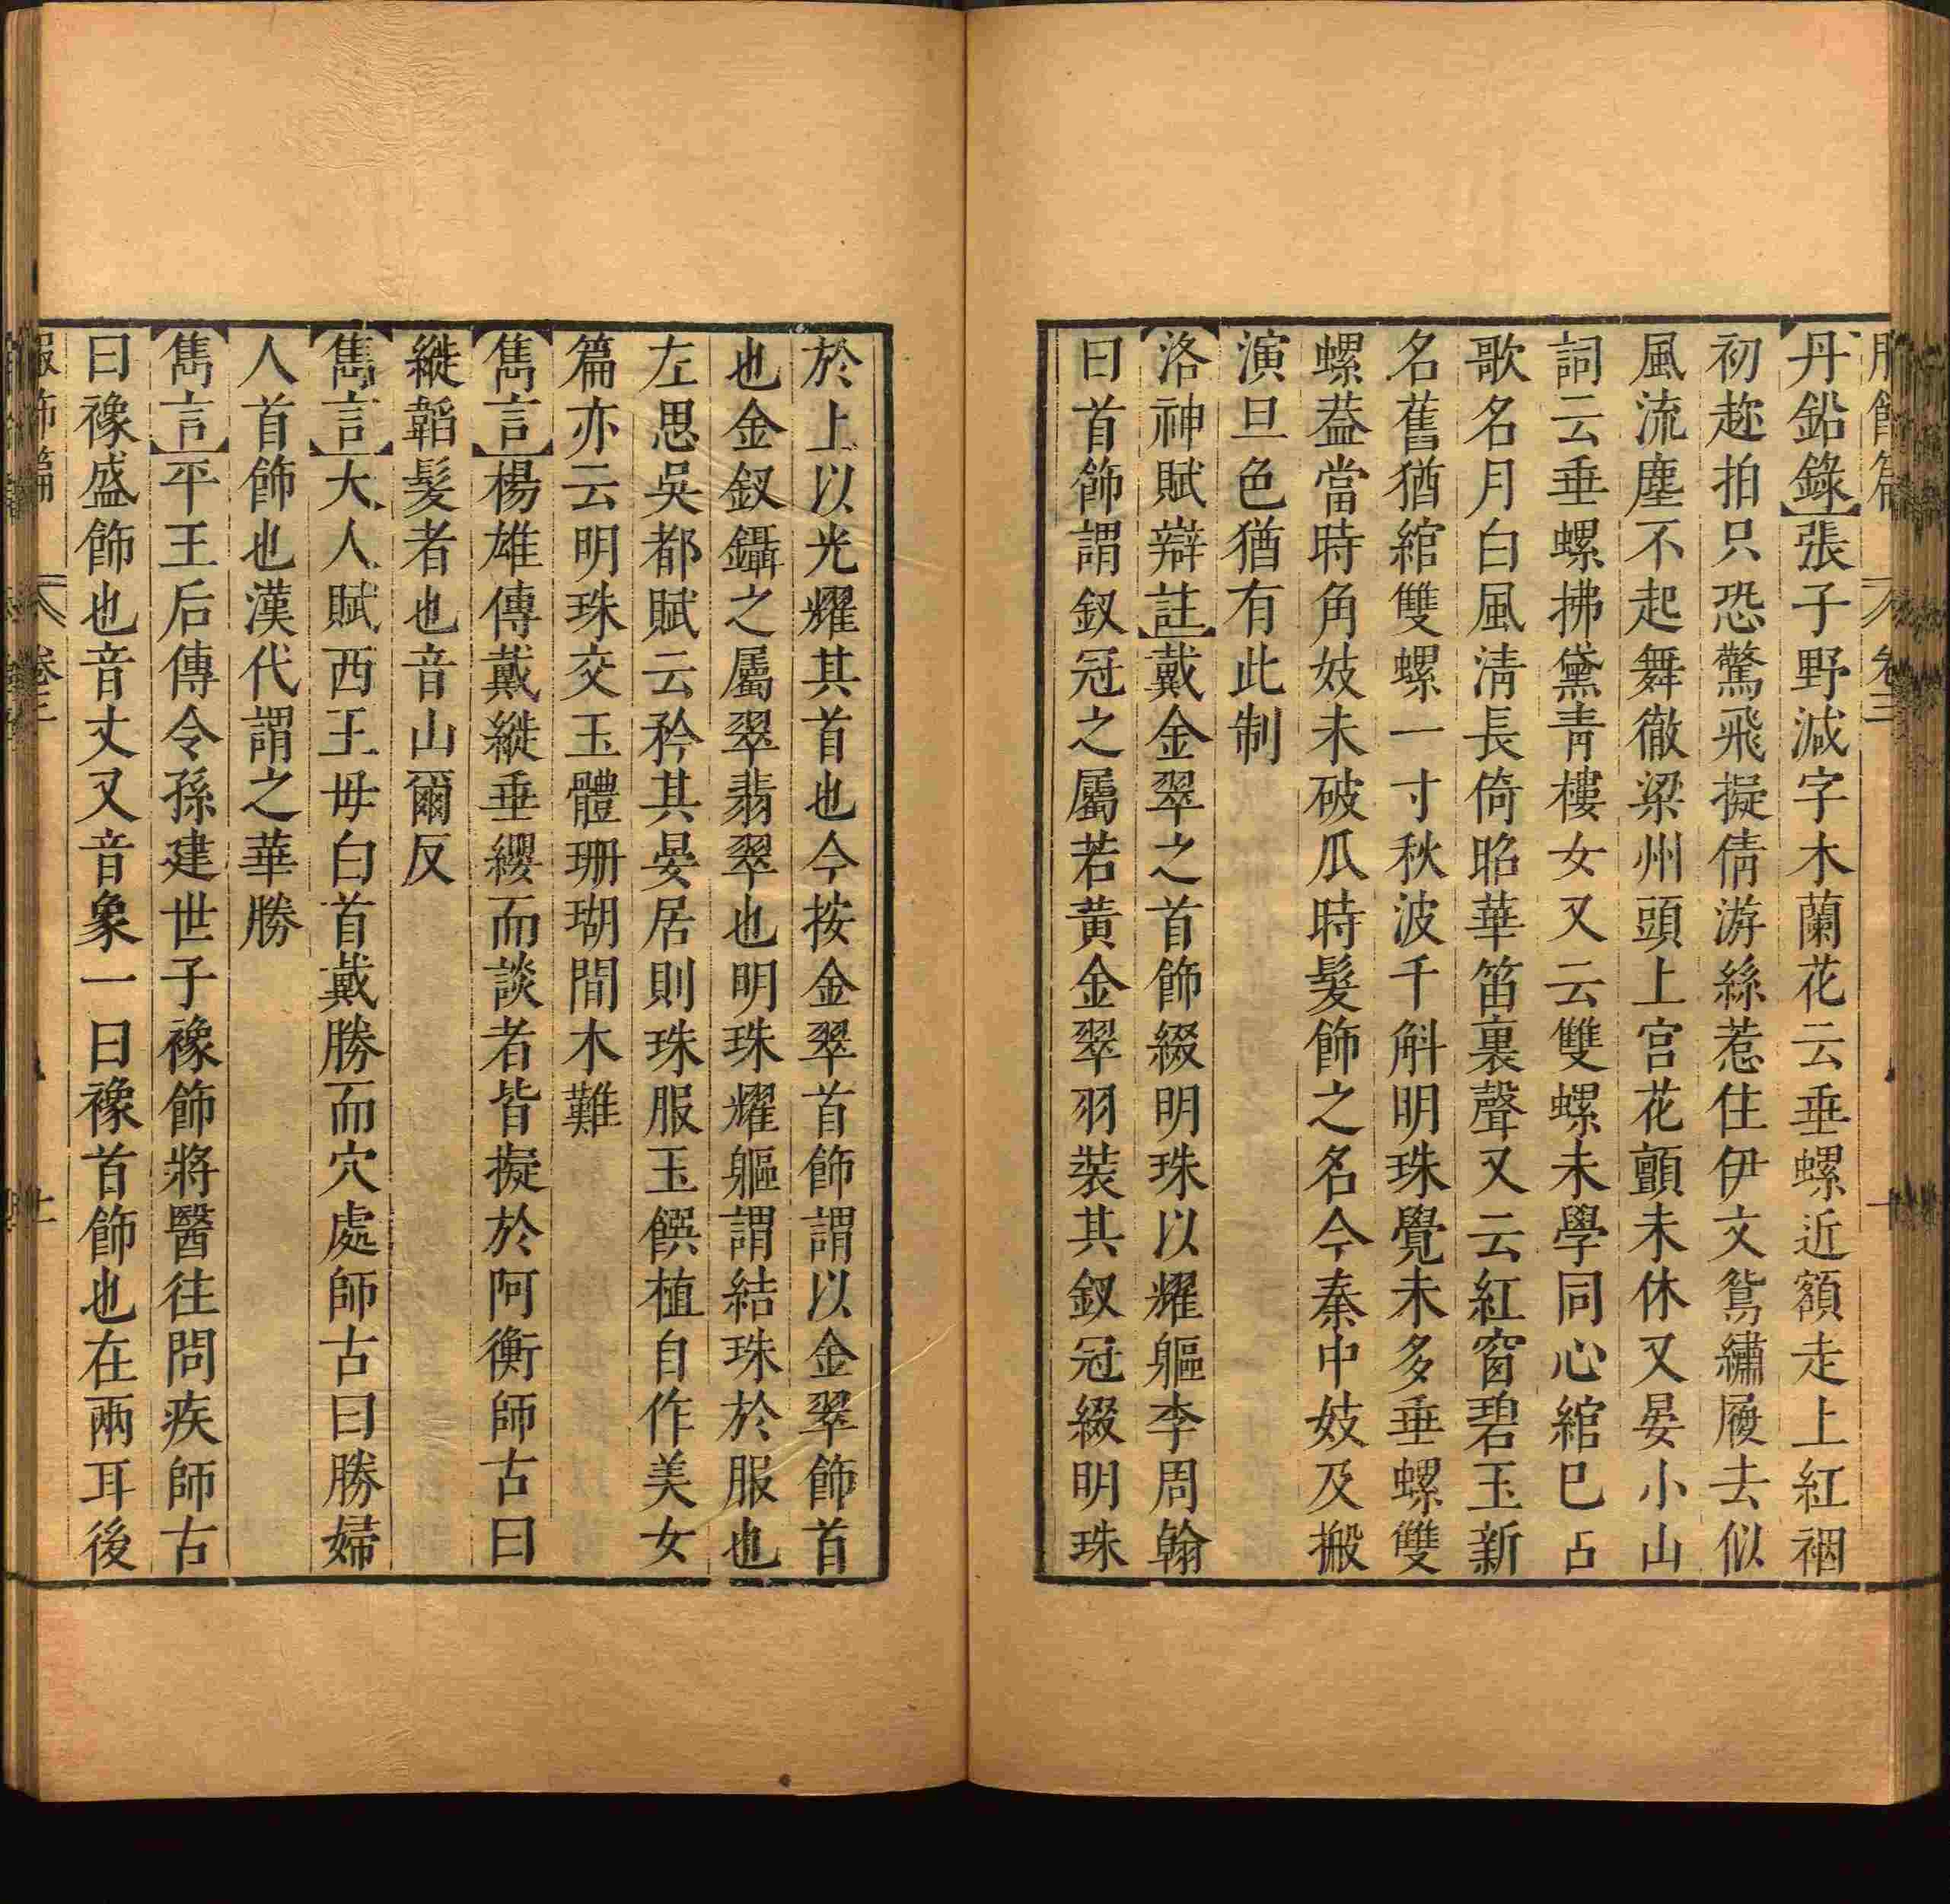 服飾篇 卷三
丹鉛錄張子野減字木蘭花云垂螺近額走上紅裀
初趂拍只恐驚飛擬倩游絲惹住伊文鴛繡履去似
風流塵不起舞徹梁州頭上宫花顫未休又晏小山
詞云垂螺拂黛青樓女又云雙螺未學同心綰巳占
歌名月白風清長倚昭華笛裏聲又云紅窗碧玉新
名舊猶綰雙螺一寸秋波千斛明珠覺未多垂螺雙
螺葢當時角妓未破瓜時髮飾之名今秦中妓及搬
演旦色猶有此制
洛神賦辯註戴金翠之首飾綴明珠以耀軀李周翰
曰首飾謂釵冠之屬若黄金翠羽裝其釵冠綴明珠
於上以光耀其首也今按金翠首飾謂以金翠飾首
也金釵鑷之屬翠翡翠也明珠耀軀謂結珠於服也
左思吳都賦云矜其晏居則珠服玉饌植自作美女
篇亦云明珠交玉體珊瑚間木難
雋言楊雄傳戴縰垂纓而談者皆擬於阿衡師古曰
縰韜髮者也音山爾反
雋言大人賦西王毋白首戴勝而穴處師古曰勝婦
人首飾也漢代謂之華勝
雋言平王后傳令孫建世子襐飾將醫往問疾師古
曰襐盛飾也音丈又音象一曰襐首飾也在兩耳後
服飾篇 卷三